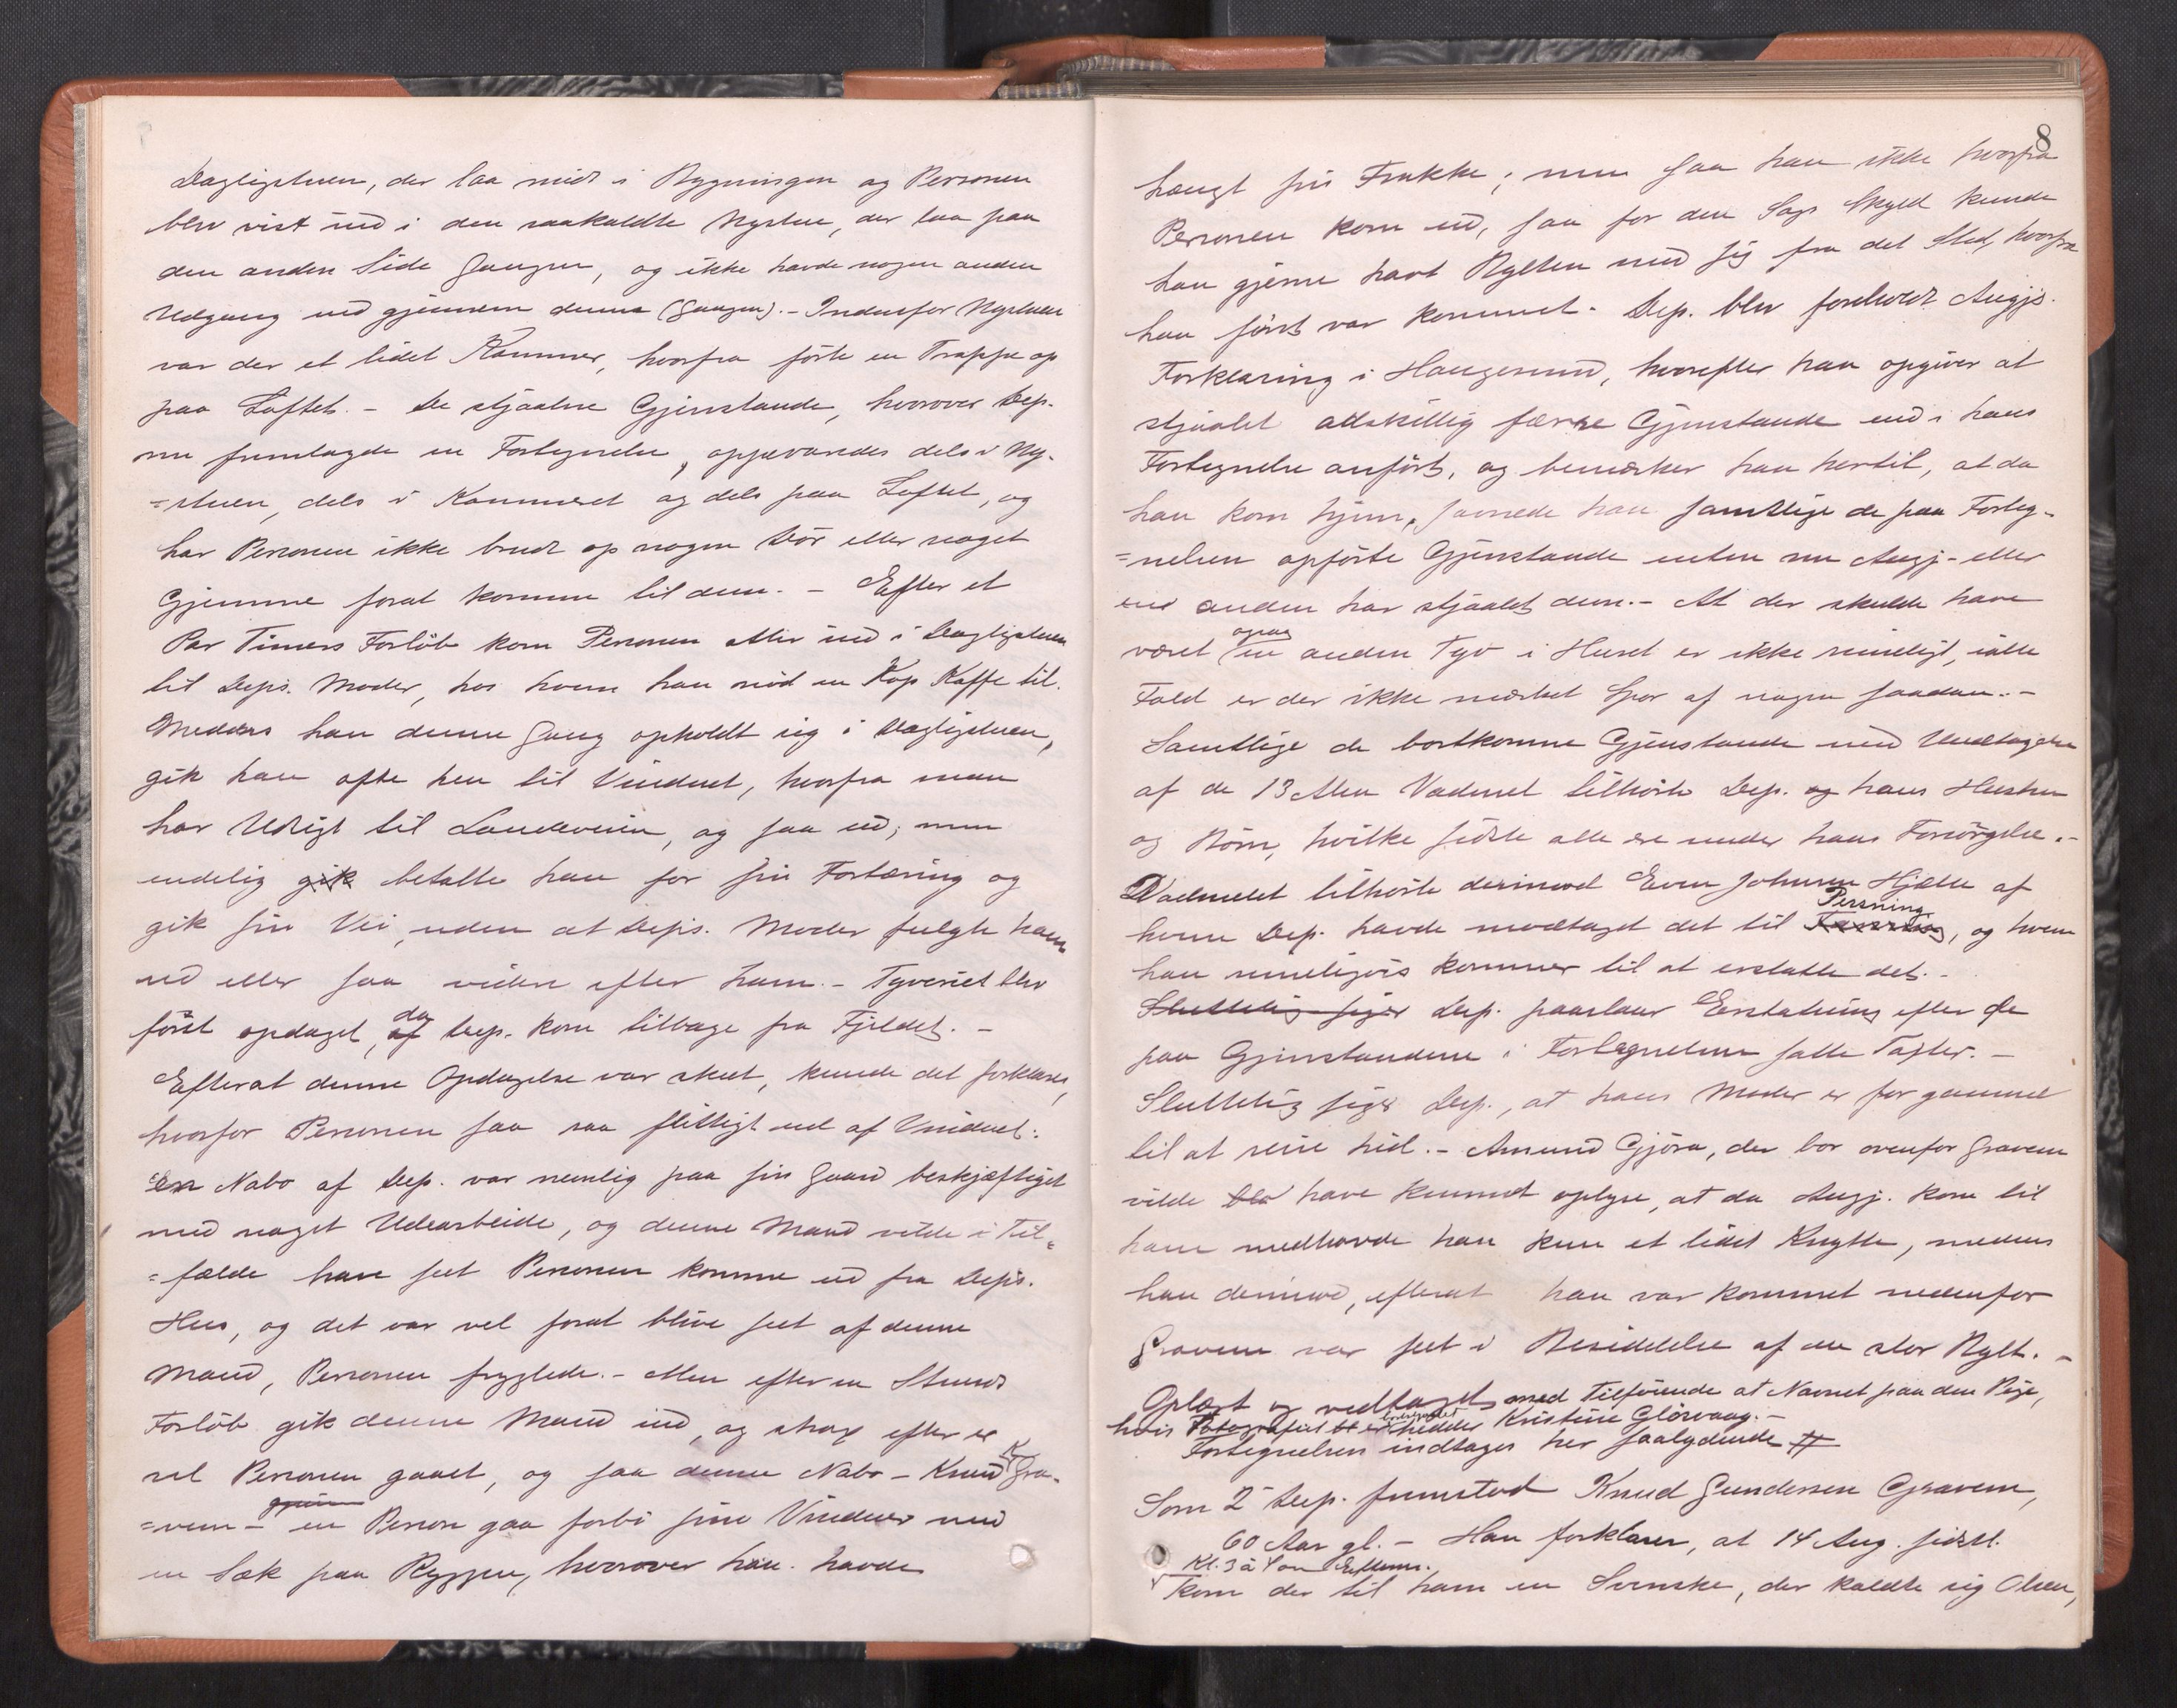 Dagligstuen, der laa midt i Bygningen og Personen
blev vist ind i den saakaldte Nystue, der laa paa
den anden Side Gangen, og ikke havde nogen anden
Udgang end gjennem denne (Gangen). - Indenfor Nystuen
var der et lidet Kammer, hvorfra førte en Trappe op
paa Loftet. - De stjaalne Gjenstande, hvorover Dep.
nu fremlagde en Fortegnelse, opgevaredes dels i Ny-
=stuen, dels i Kammeret og dels paa Loftet, og
har Personen ikke brudt op nogen Dør eller noget
Gjemme forat komme til dem. - Efter et
Par Timers Forløb kom Personen atter ind i Dagligstuen
til Deps. Moder, hos hvem han nød en Kop Kaffe til.
Medens han denne Gang opholdt sig i Dagligstuen,
gik han ofte hen til Vinduet, hvorfra man
har Udsigt til Landeveien, og saa ud; men
endelig gik betalte han for sin Fortæring og
gik sin Vei, uden at Deps. Moder fulgte ham
ud eller saa videre efter ham. - Tyveriet blev
først opdaget, af da Dep. kom tilbage fra Fjeldet. -
Efterat denne Opdagelse var skeet, kunde det forklares,
hvorfor Personen saa saa flittigt ud af Vinduet:
En Nabo af Dep. var nemlig paa sin Gaard beskjæftiget
med noget Udearbeide, og denne Mand vilde i Til=
=fælde have seet Personen komme ud fra Deps.
Hus, og det var vel forat blive seet af denne
Mand, Personen frygtede. - Men efter en Stunds
Forløb gik denne Mand ind, og strax efter er
vel Personen gaaet, og saa denne Nabo - Knud Gra-
=vem - en Person gaa forbi sine Vinduer med
en Sæk paa Ryggen, hvorover han havde
8
hængt sin Frakke; men saa han ikke hvorfra
Personen kom ud, saa for den Sags Skyld kunde
han gjerne havt Bylten med sig fra det Sted, hvorfra
han først var kommet. Dep. blev foreholdt Angjs.
Forklaring i Haugesund, hvorefter han opgiver at
stjaalet adskillig færre Gjenstande end i hans
Fortegnelse anført, og bemærker han hertil, at da
han kom hjem, savnede han samtlige de paa Forteg-
=nelsen opførte Gjenstande enten nu Angj. eller
end anden har stjaalet dem. - At der skulde have
været ogsaa en anden Tyv i Huset er ikke rimeligt, ialle
Fald er der ikke mærket Spor af nogen saadan. -
Samtlige de bortkomne Gjenstande med Undtagelse
af de 13 Alen Vadmel tilhørte Dep. og hans Hustru
og Børn, hvilke sidste alle ere under hans Forsørgelse. -
Vadmelet tilhørte derimod Even Johnsen Hjælle af
hvem Dep. havde modtaget det til Persning, og hvem
han rimeligvis kommer til at erstatte det. -
Sluttelig siger Dep. paastaar Erstatning efter de
paa Gjenstandene i Fortegnelsen satte Taxter. -
Sluttelig siger Dep., at hans Moder er for gammel
til at reise hid. - Amund Gjöra, der bor ovenfor Gravem
vilde bla have kunnet oplyse, at da Angj. kom til
ham medhavde han kun et lidet Knytte, medens
han derimod, efterat han var kommet nedenfor
Gravem var seet i Besiddelse af en stor Bylt. -
Oplæst og vedtaget med Tilføiende at Navnet paa den Pige,
hvis Fotografiet er bortsjaalet hedder Kristine Glørvaag. -
Fortegnelsen indtages her saalydende #
Som 2 Dep. fremstod Knud Gundersen Gravem,
60 Aar gl. - Han forklarer, at 14 Aug. sidstl.
Kl. 3 à 4 om Efterm.
kom der til ham en Svenske, der kaldte sig Olsen,